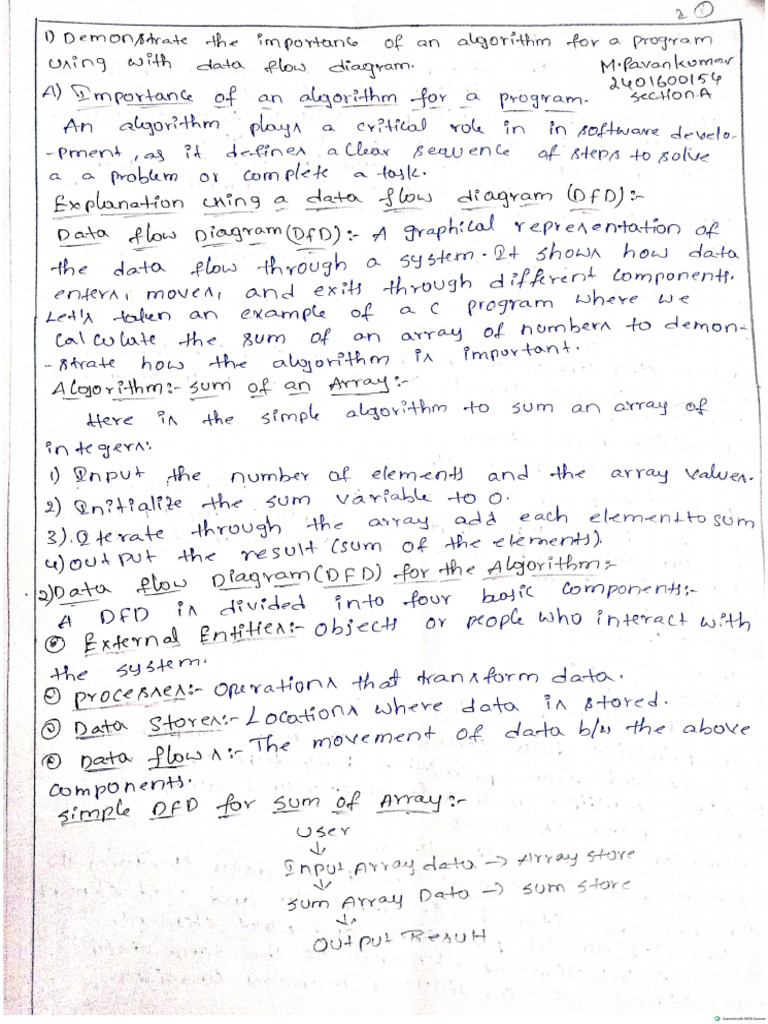 2 ①
1) Demonstrate the importance of an algorithm for a program
using with data flow diagram.
M.Pavankumar
2401600154
section A
A) Importance of an algorithm for a program.
An algorithm plays a critical role in in software develo-
-pment, as it defines a clear sequence of steps to solve
a a problem or complete a task.
Explanation using a data flow diagram (DFD):-
Data flow Diagram (DFD):- A graphical representation of
the data flow through a system. It shows how data
enters, moves, and exits through different components.
Let's taken an example of a c program where we
calculate the sum of an array of numbers to demon-
-strate how the algorithm is important.
Alogorithm:- sum of an Array:-
Here is the simple algorithm to sum an array of
integers:
1) Input the number of elements and the array values.
2) Initialize the sum variable to 0.
3). Iterate through the array add each element to sum
4) output the result (sum of the elements).
2) Data flow Diagram (DFD) for the Algorithm:-
A DFD is divided into four basic components:-
External Entities:- objects or people who interact with
the system.
processes:- operations that transform data.
Data stores:- Locations where data is stored.
Data flows:- The movement of data b/w the above
components.
simple DFD for sum of Array:-
User
↓
Input Array data → Array store
↓
sum Array Data → sum store
↓
Output Result
Scanned with OKEN Scanner